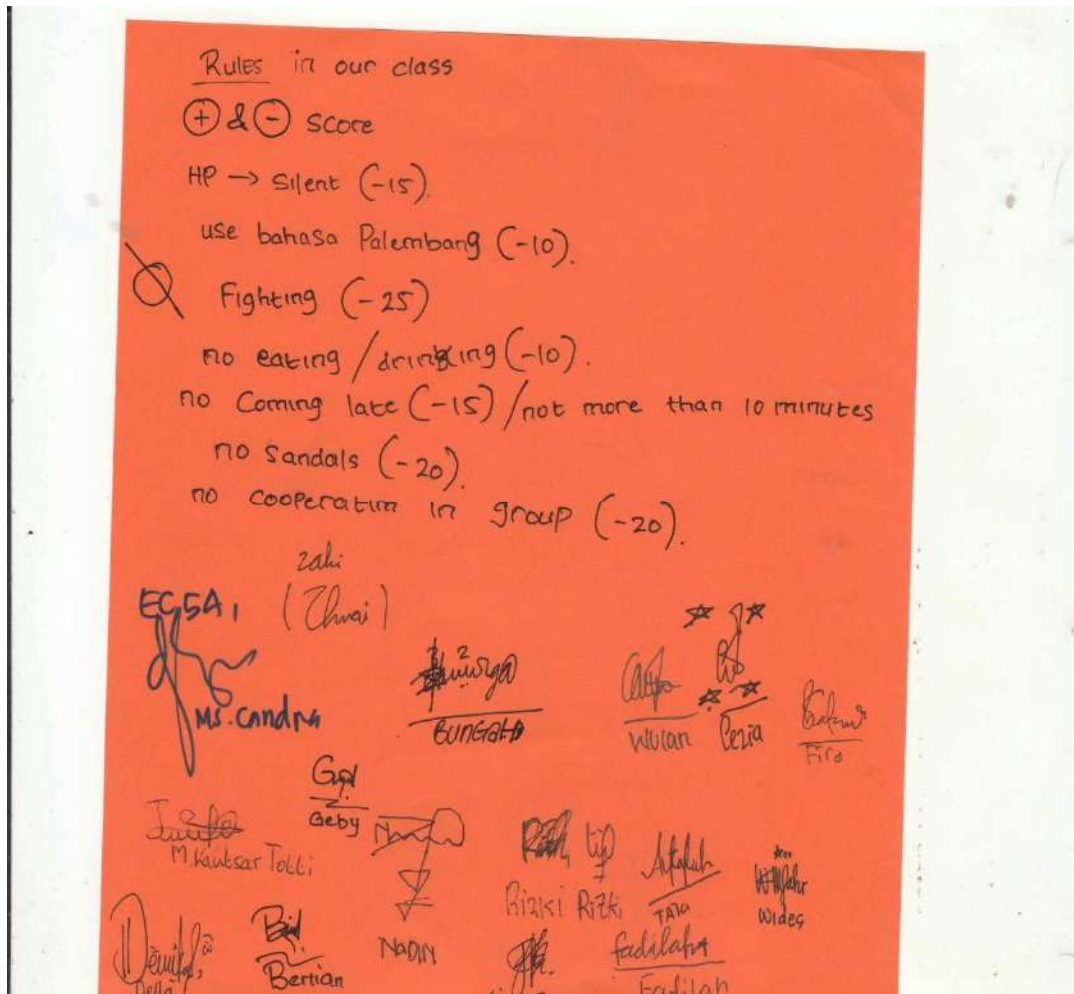 Rules in our class
⊕ & ⊖ score
HP → Silent (-15).
use bahasa Palembang (-10).
Fighting (-25)
no eating / drinking (-10).
no Coming late (-15) / not more than 10 minutes
no Sandals (-20).
no cooperation in group (-20).
zahi
EC5A1
Ms. Candra
Wulan Pezia
Firo
Geby
M. Kautsar Totti
Rizki Rizki
TATA
Wides
NADIN
Bertian
fadilah
Fadilah
Della